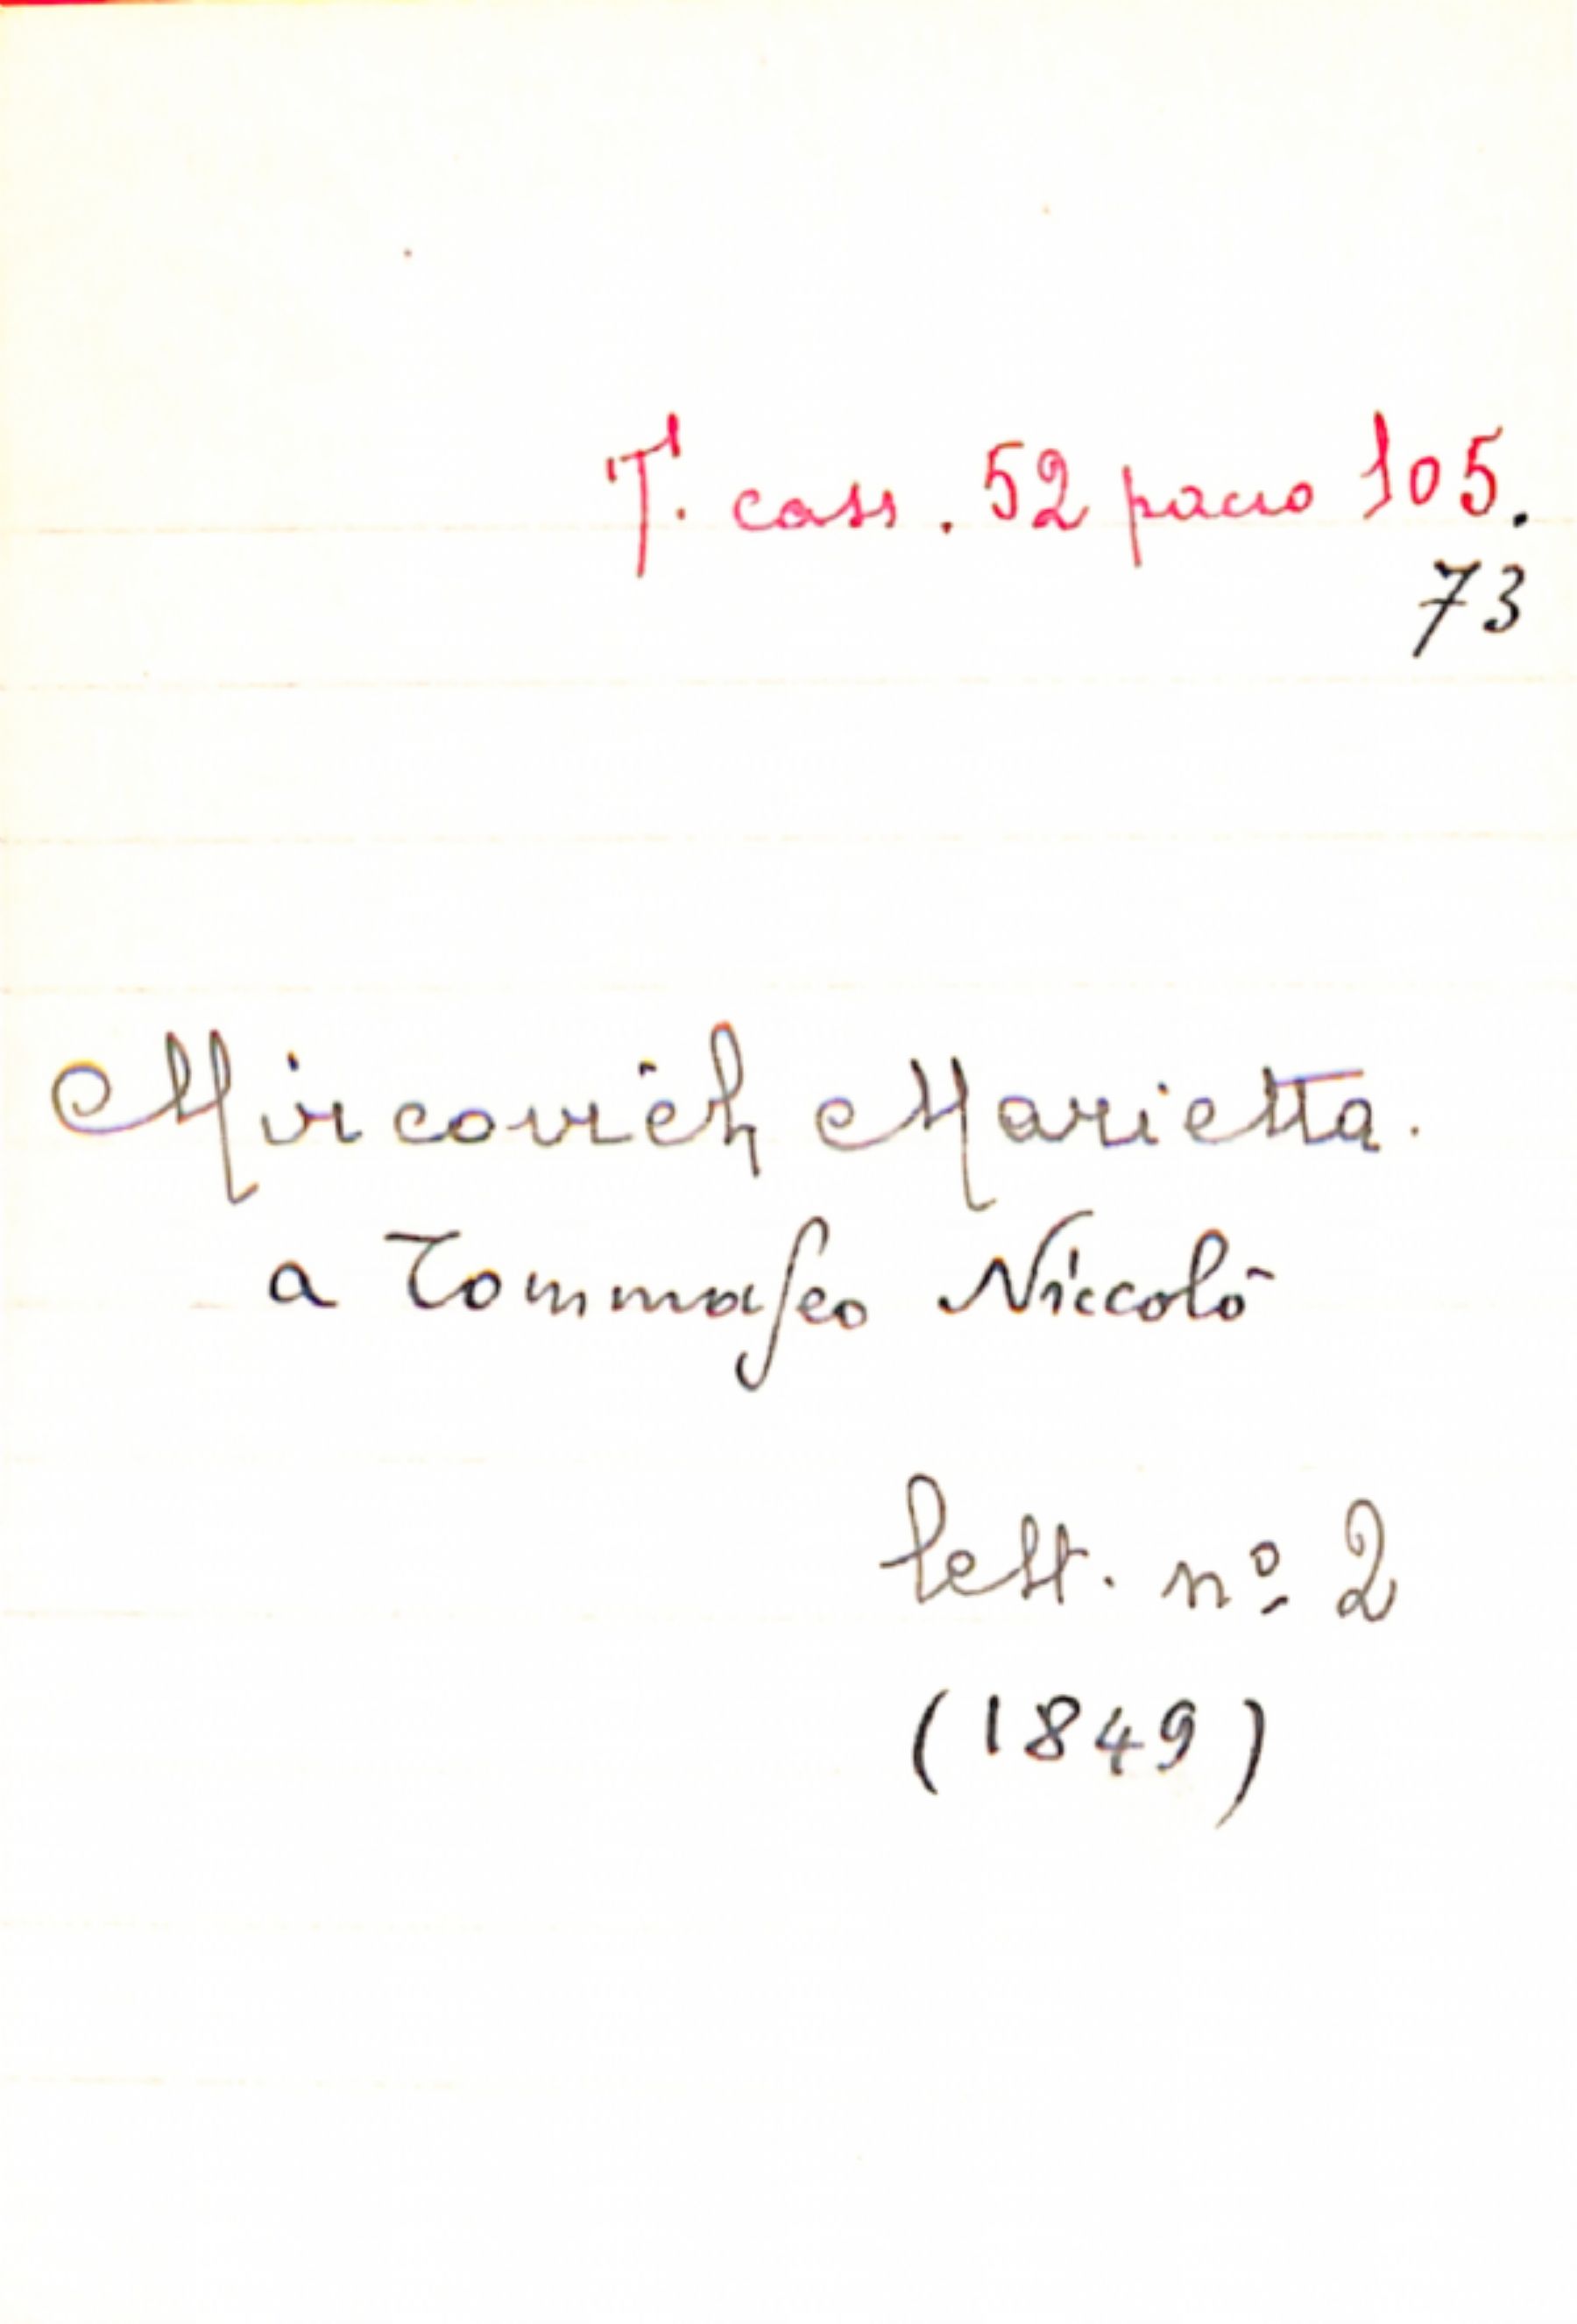 T. cass. 52 pacco 105.
73
Mircovich Marietta.
a Tommaseo Niccolò
lett. nº 2
(1849)